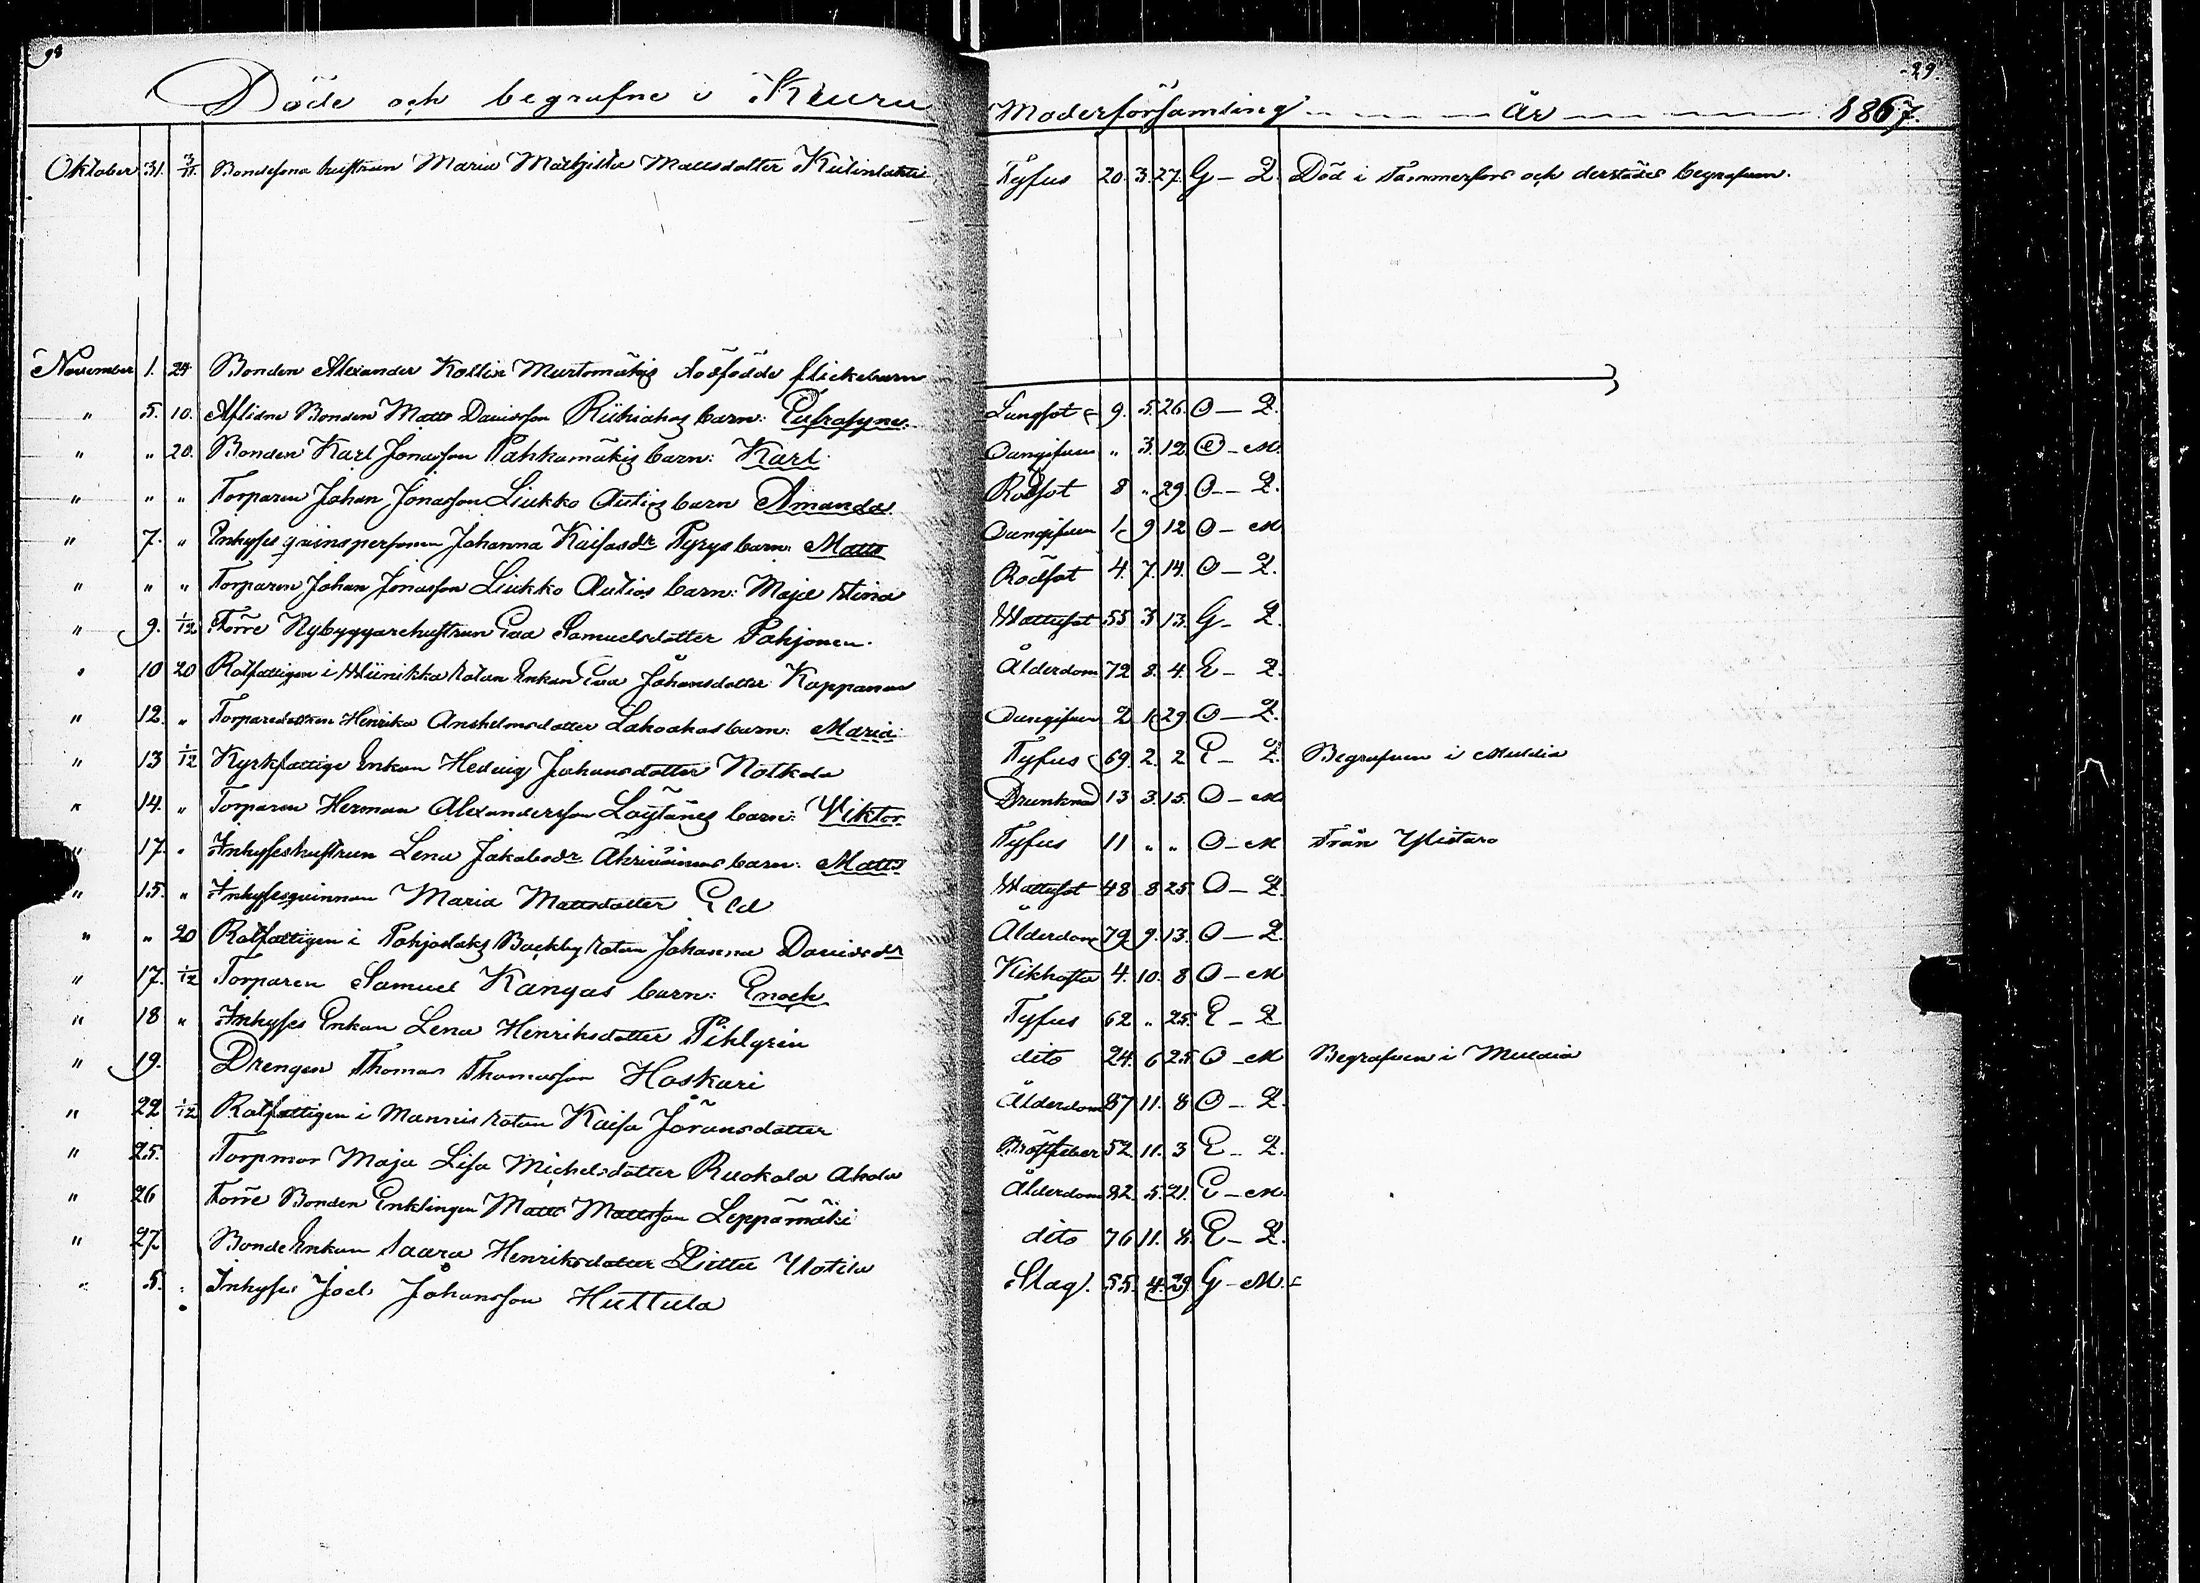 29.
Döde och begrafne i Keuru Moderförsamling År 1867.
Oktober 31. 3/11. Bondesona hustrun Maria Mathilda Mattsdotter Tyfus 20. 3. 27. G - Q. Död i Tammerfors och derstädes begrafven.
November 1. 24 Bonden Alexander Kallix Murtomäkis dödfödde flickebarn
" 5. 10. Aflidne Bonden Matts Davidsson Riihiahos barn: Eufrosyne. Lungsot 9. 5. 26. O - Q.
" " 20. Bonden Karl Jonasson Pahkamäkis barn: Karl. " 3. 12. O - M.
" " " Torparen Johan Jonasson Liukko Autios barn Amanda. Rödsot 8 " 29. O - Q.
" 7. " Inhyses qvinspersonen Johanna Kaisasdr Pyrys barn: Matts 1. 9 12 O - M
" " " Torparen Johan Jonasson Liukko Autios barn: Maja Stina Rödsot 4. 7. 14. O - Q.
" 9. 1/12 Förre Nybyggarehustrun Eva Samuelsdotter Pohjonen. Wattusot 55 3 13. G - Q.
" 10 20 Rotfattigen i rotan Enkan Eva Johansdotter Kopponen Ålderdom 72 8. 4. E - Q.
" 12. " Henrika Anshelmsdotter Lahoahos barn: Maria. 2 1. 29 O - Q.
" 13 1/12 Kyrkfattige Enkan Hedvig Johansdotter Notkola Tyfus 69. 2. 2 E - Q. Begrafven i Multia
" 14. " Torparen Herman Alexandersson Löytänes barn: Viktor. Drunknad 13 3. 15. O - M
" 17. " Inhyseshustrun Lena Jakobsdr barn: Matts Tyfus 11 " " O - M Från Ylistaro
" 15. " Inhysesqvinnan Maria Mattsdotter Eld Wattusot 48 8 25 O - Q.
" " 20 Rotfattigen i Pohjoslaks Backby rotan Johanna Davidsdr Ålderdom 79 9. 13. O - Q.
" 17. 1/12 Torparen Samuel Kangas barn: Enoch Kikhosta 4. 10. 8 O - M
" 18 " Inhyses Enkan Lena Henriksdotter Pihlgrén Tyfus 62 " 25. E - Q
" 19. Drengen Thomas Thomasson Hoskari dito 24. 6 25. O - M Begrafven i Multia
" 22 1/12 Rotfattigen i Mannis rotan Kaisa Göransdotter Ålderdom 87 11. 8 O - Q.
" 25. Torpmor Maja Lisa Michelsdotter Ruokola Ahola Bröstfeber 52. 11. 3 E - Q.
" 26 Förre Bonden Enklingen Matts Mattsson Leppämäki Ålderdom 82. 5. 21. E - M.
" 27. Bonde Enkan Saara Henriksdotter Ylotila dito 76 11. 8. E - Q.
" 5. " Inhyses Joel Johansson Huttula Slag. 55. 4. 29. G - M.